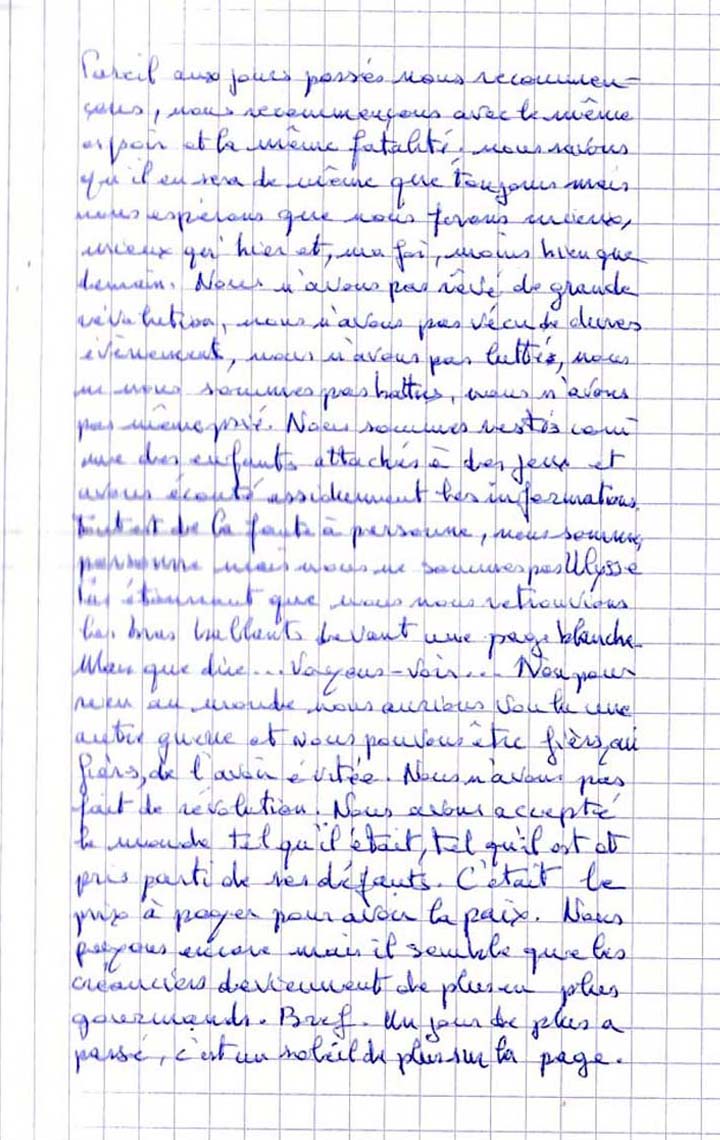 Pareil aux jours passés nous recommen-
çons, nous recommençons avec le même
espoir et la même fatalité, nous savons
qu'il en sera de même que toujours mais
nous espérons que nous ferons mieux,
mieux qu'hier et, ma foi, moins bien que
demain. Nous n'avons pas rêvé de grande
révolution, nous n'avons pas vécu de dures
évènement, nous n'avons pas luttés, nous
ne nous sommes pas battus, nous n'avons
pas même prié. Nous sommes restés com
me des enfants attachés à des jeux et
avons écouté assidument les informations.
Tout est de la faute à personne, nous sommes
personne mais nous ne sommes pas Ulysse
étonnant que nous nous retrouvions
les bras ballants devant une page blanche.
Mais que dire... Voyons-voir... Non pour
rien au monde nous aurions voulu une
autre guerre et nous pouvons être fiers, oui
fiers, de l'avoir évitée. Nous n'avons pas
fait de révolution. Nous avons accepté
le monde tel qu'il était, tel qu'il est et
pris parti de ses défauts. C'était le
prix à payer pour avoir la paix. Nous
payons encore mais il semble que les
créanciers deviennent de plus en plus
gourmands. Bref. Un jour de plus a
passé, c'est un soleil de plus sur la page.